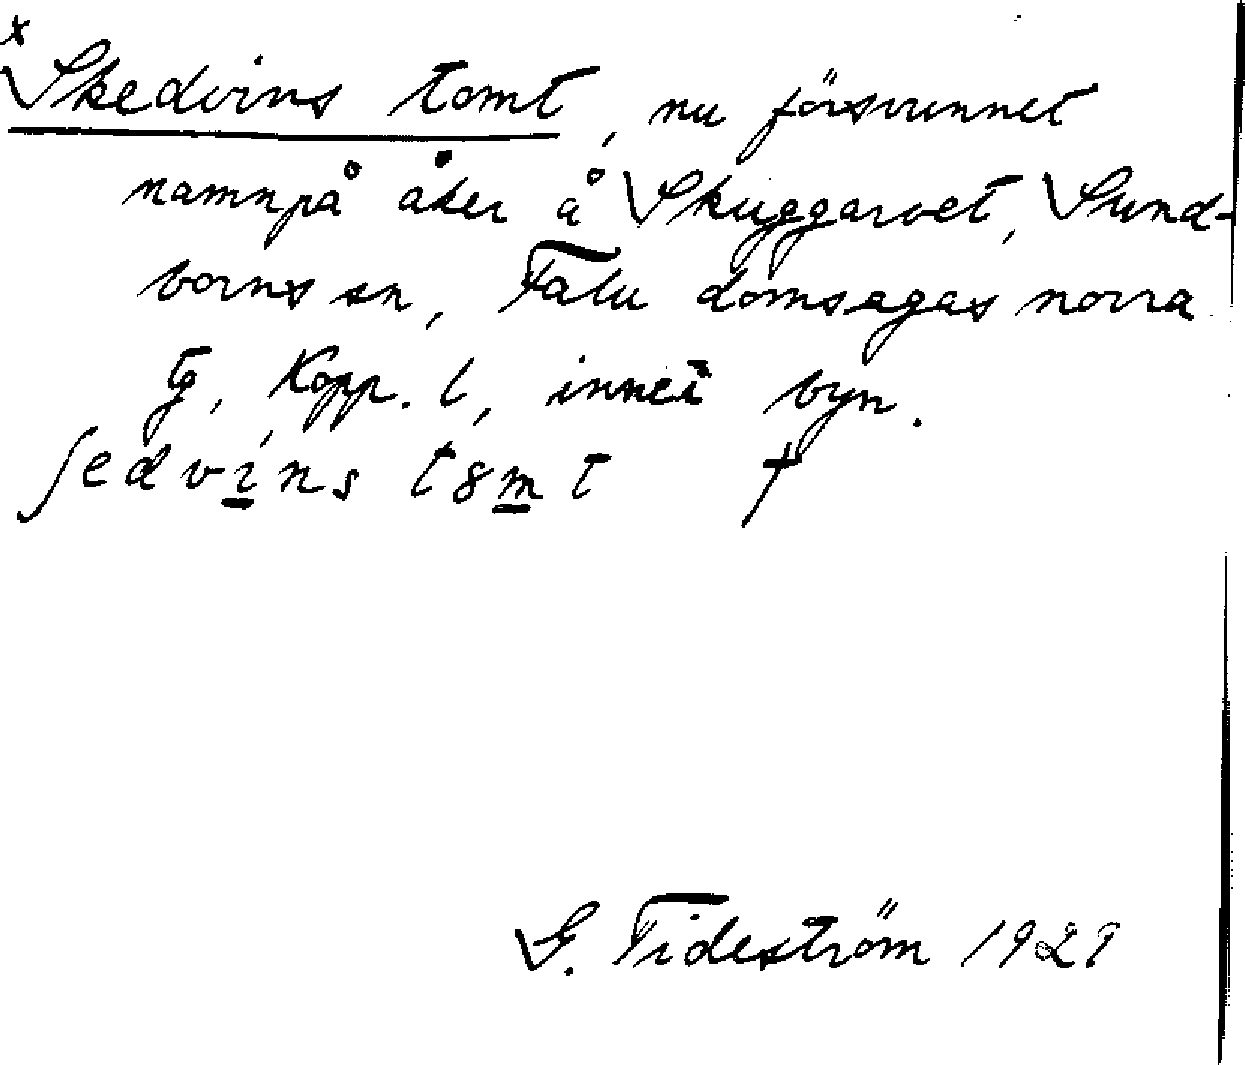 x
Skedvins tomt, nu försvunnet
namn på åker å Skuggarvet, Sund-
borns sn, Falu domsagas norra
tg, Kopp. l, inne i byn.
ʃedvins tωmt †
G. Tideström 1929